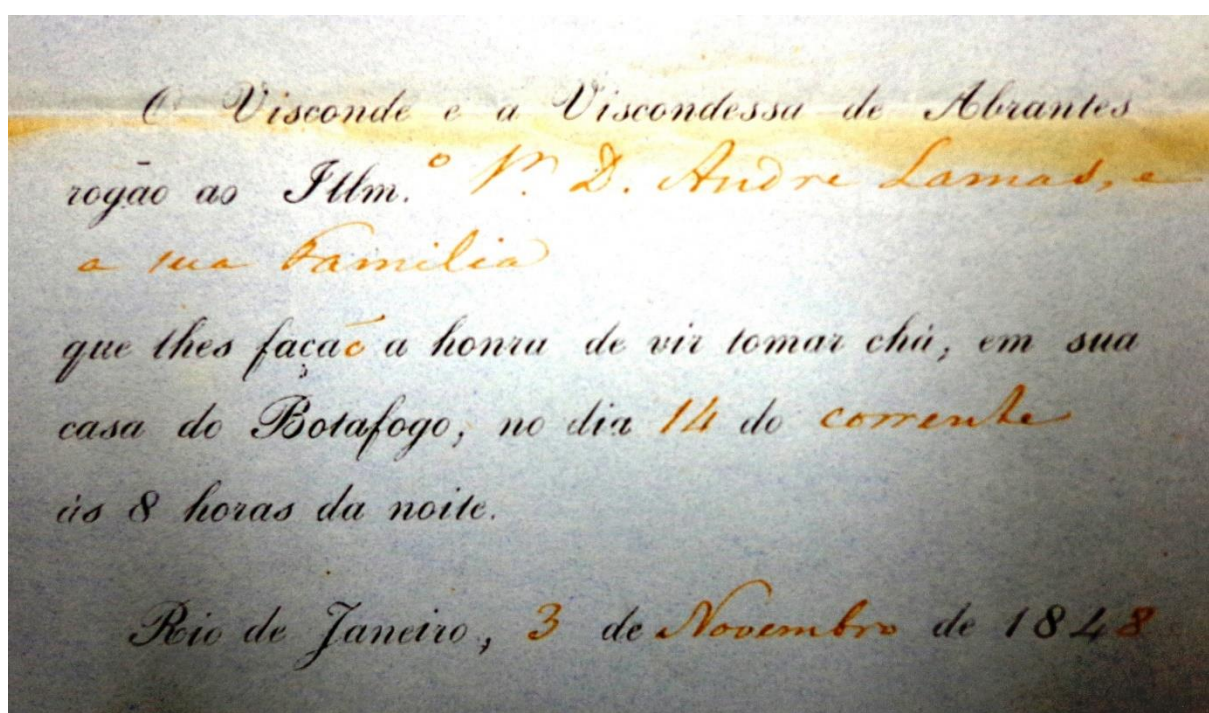 O Visconde e a Viscondessa de Abrantes
rogão ao Illm.º Sr. D. Andre Lamas, e
a sua Familia
que lhes fação a honra de vir tomar chá, em sua
casa do Botafogo, no dia 14 do corrente
ás 8 horas da noite.
Rio de Janeiro, 3 de Novembro de 1848